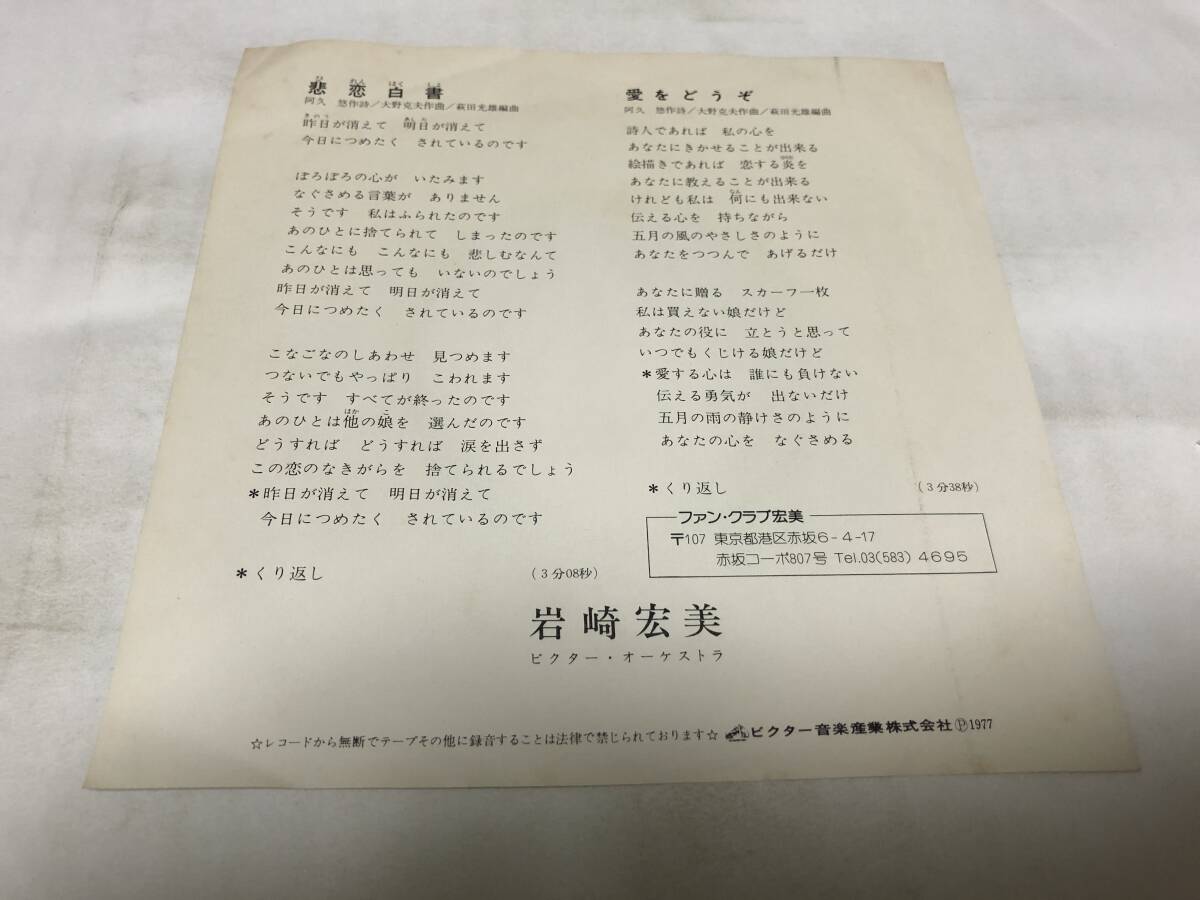 悲恋白書
阿久 悠作詩／大野克夫作曲／萩田光雄編曲
昨日が消えて 明日が消えて
今日につめたく されているのです
ぼろぼろの心が いたみます
なぐさめる言葉が ありません
そうです 私はふられたのです
あのひとに捨てられて しまったのです
こんなにも こんなにも 悲しむなんて
あのひとは思っても いないのでしょう
昨日が消えて 明日が消えて
今日につめたく されているのです
こなごなのしあわせ 見つめます
つないでもやっぱり こわれます
そうです すべてが終ったのです
あのひとは他の娘を 選んだのです
どうすれば どうすれば 涙を出さず
この恋のなきがらを 捨てられるでしょう
＊昨日が消えて 明日が消えて
今日につめたく されているのです
＊くり返し （3分08秒）
愛をどうぞ
阿久 悠作詩／大野克夫作曲／萩田光雄編曲
詩人であれば 私の心を
あなたにきかせることが出来る
絵描きであれば 恋する炎を
あなたに教えることが出来る
けれども私は 何にも出来ない
伝える心を 持ちながら
五月の風のやさしさのように
あなたをつつんで あげるだけ
あなたに贈る スカーフ一枚
私は買えない娘だけど
あなたの役に 立とうと思って
いつでもくじける娘だけど
＊愛する心は 誰にも負けない
伝える勇気が 出ないだけ
五月の雨の静けさのように
あなたの心を なぐさめる
＊くり返し （3分38秒）
ファン・クラブ宏美
〒107 東京都港区赤坂6-4-17
赤坂コーポ807号 Tel.03(583)4695
岩崎宏美
ビクター・オーケストラ
☆レコードから無断でテープその他に録音することは法律で禁じられております☆ ビクター音楽産業株式会社Ⓟ1977